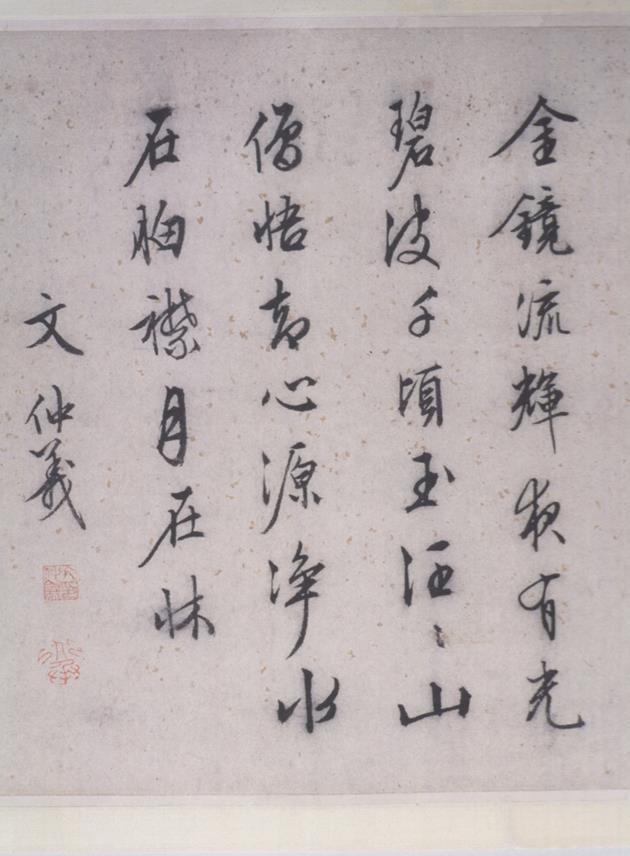 金鏡流輝夜有光
碧波千頃玉汪〻山
僧悟心源淨水
在胸襟月在牀
文仲義